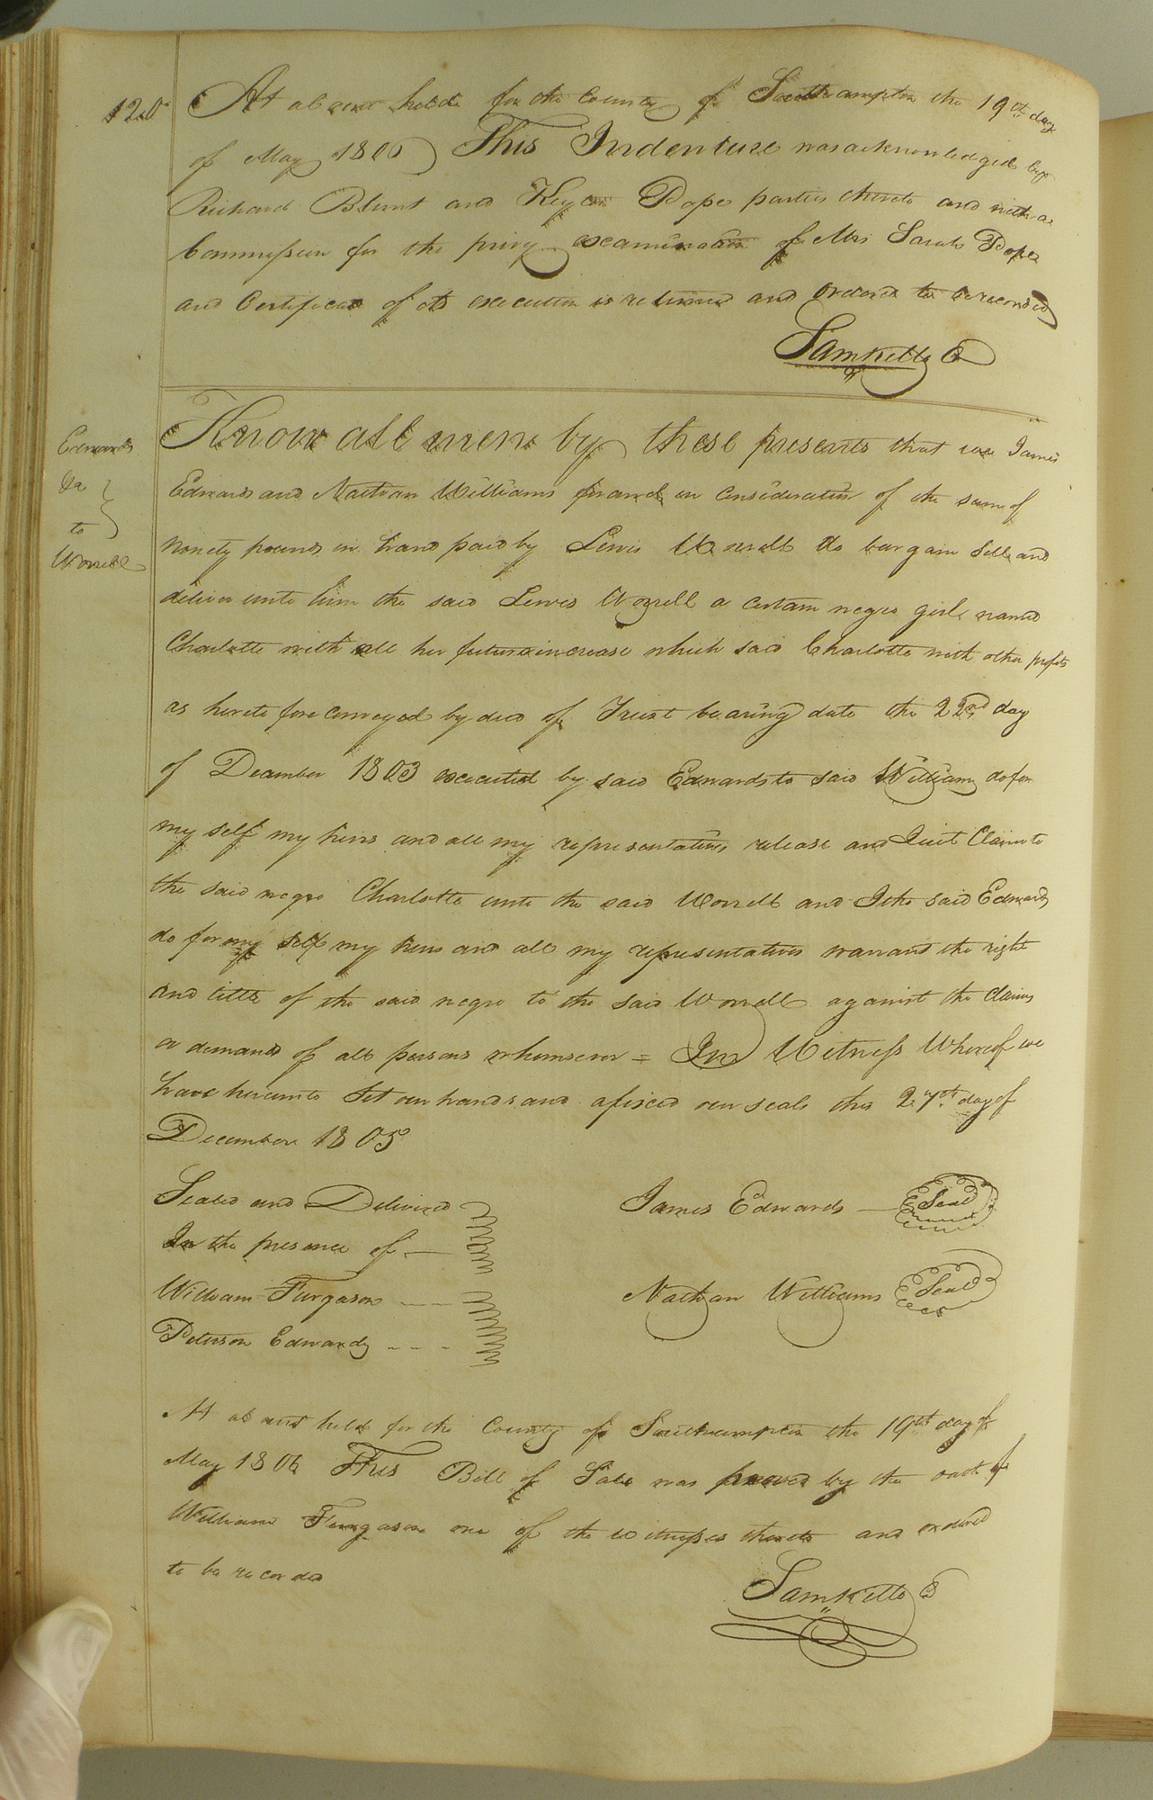 120
At a Court held for the County of Southampton the 19th day
of May 1806 This Indenture was acknowledged by
Richard Blunt and Pope parties thereto and with a
Commission for the privy examination of Mrs Sarah Pope
and Certificate of its execution is returned and ordered to be recorded
Sam Kello C
Edwards
&a
to
Worrell
Know all men by these presents that we James
Edwards and Nathan Williams for and in consideration of the sum of
Ninety pounds in hand paid by Lewis Worrell do bargain Sell and
deliver unto him the said Lewes Worrell a certain negro girl named
Charlotte with all her future increase which said Charlotte with other
as heretofore conveyed by deed of Trust bearing date the 22nd day
of December 1803 executed by said Edwards to said Williams do for
my self my heirs and all my representatives release and Quit Claim to
the said negro Charlotte unto the said Worrell and I the said Edwards
do for my self my heirs and all my representatives warrant the right
and title of the said negro to the said Worrell against the claims
or demands of all persons whomsever = In Witness Whereof we
have hereunto Set our hands and afixed our seals this 27th day of
December 1805
Sealed and Delivered
In the presence of —
William Furgason ---
Peterson Edwards ---
James Edwards — Seal
Nathan Williams Seal
At a Court held for the County of Southampton the 19th day of
May 1806 This Bill of Sale was proved by the oath of
William Furgason one of the witnesses thereto and ordered
to be recorded
Sam Kello C